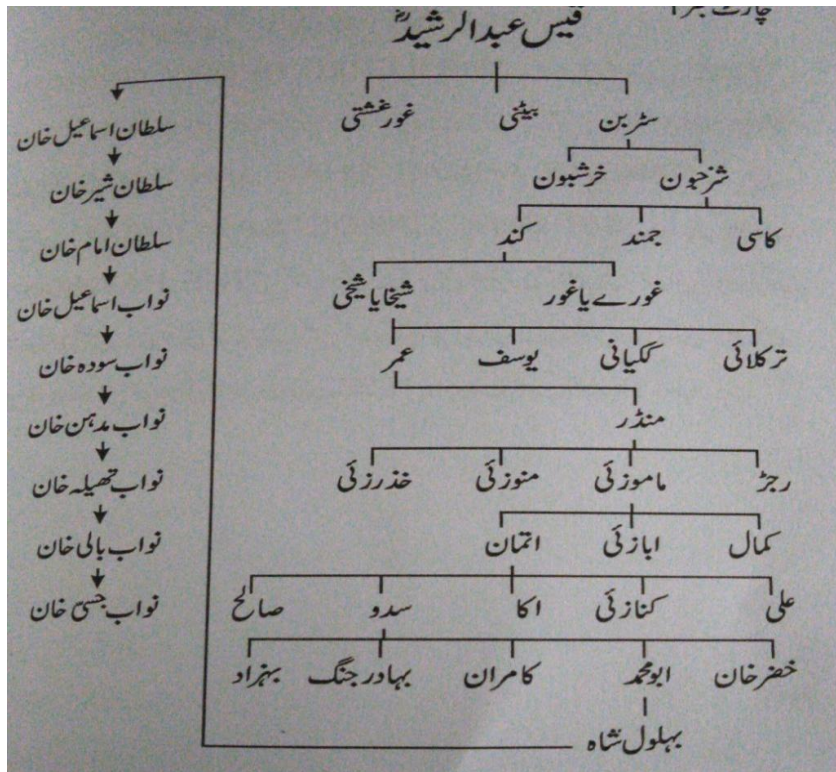 چارٹ نمبر ۱
قیس عبدالرشیدؒ
سڑبن بیٹنی غورغشتی
شرحبون خرشبون
کاسی جمند کند
غورے یا غور شیخا یا شیخی
ترکلائی ککیانی یوسف عمر
منڈر
رجڑ ماموزئی منوزئی خذرزئی
کمال ابازئی اتمان
علی کنازئی اکا سدو صالح
خضر خان ابو محمد کامران بہادر جنگ بہزاد
بہلول شاہ
سلطان اسماعیل خان
سلطان شیر خان
سلطان امام خان
نواب اسماعیل خان
نواب سودہ خان
نواب مدہن خان
نواب تھیلہ خان
نواب بالی خان
نواب جسی خان